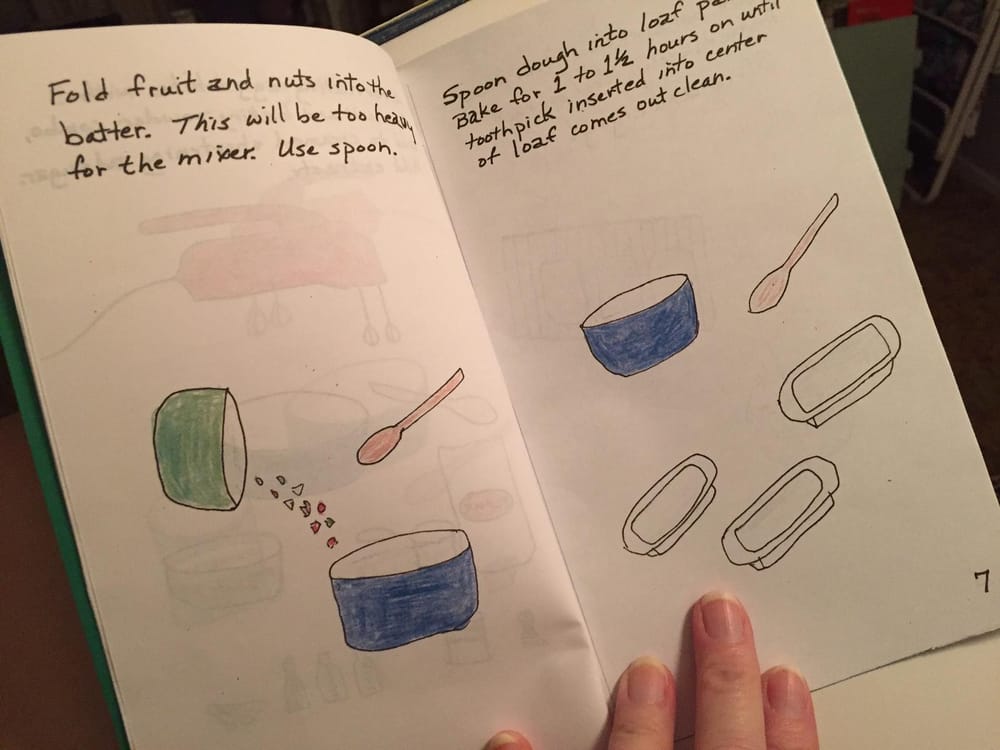 Fold fruit and nuts into the
batter. This will be too heavy
for the mixer. Use spoon.
Spoon dough into loaf
Bake for 1 to 1½ hours on until
toothpick inserted into center
of loaf comes out clean.
7